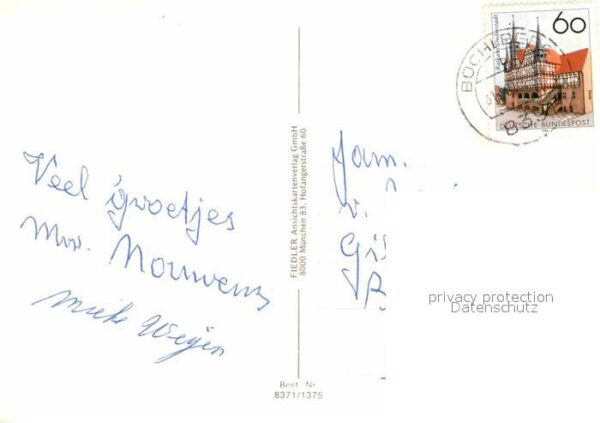 Veel groetjes
Mw. Nouwens
Mieke Weijen
FIEDLER Ansichtskartenverlag GmbH
8000 München 83, Hofangerstraße 60
Best. Nr.
8371/1375
60
DEUTSCHE BUNDESPOST
Fam.
v.
privacy protection
Datenschutz